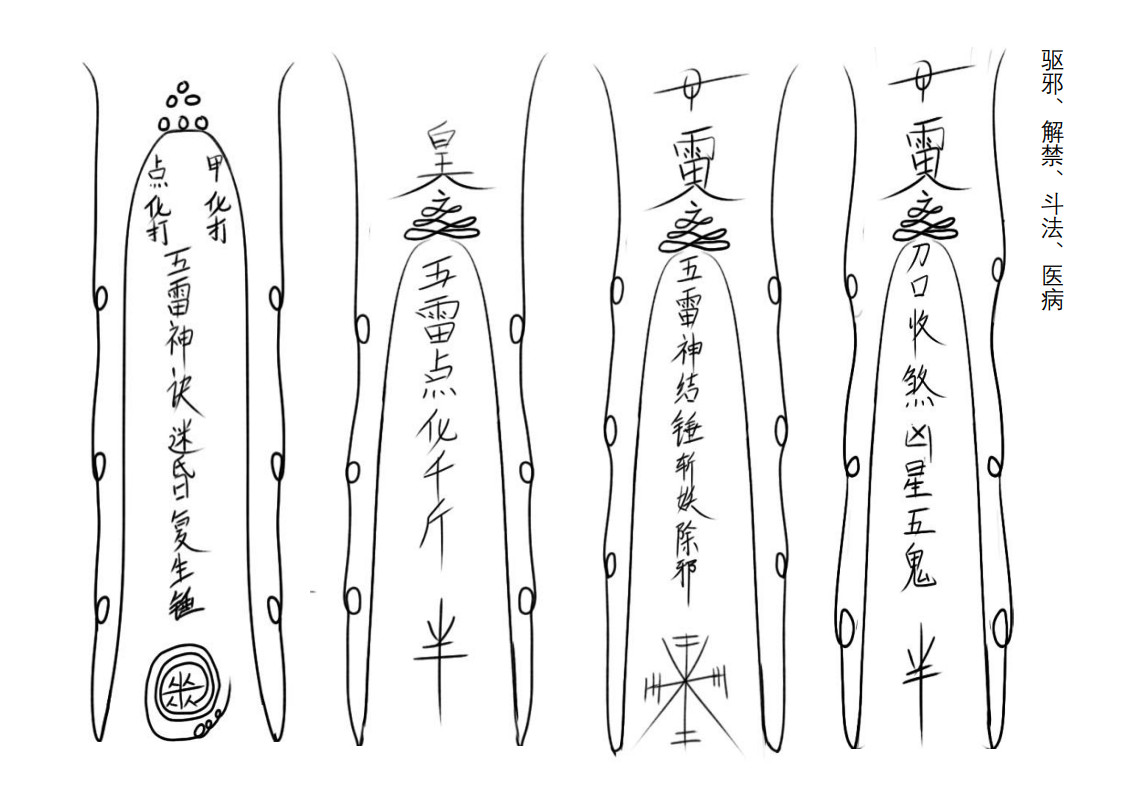 驱邪、解禁、斗法、医病
甲雷
刀口收煞凶星五鬼
半
甲雷
五雷神结锤斩妖除邪
皇
五雷点化千斤
半
甲化打
点化打
五雷神诀迷昏复生锤